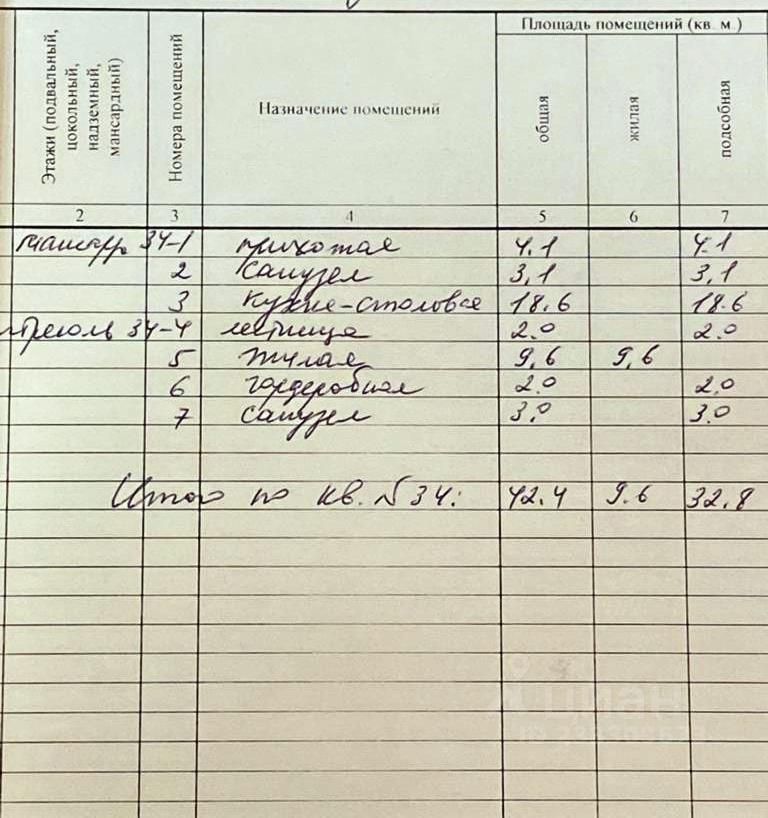 Площадь помещений (кв. м.)
Этажи (подвальный, цокольный, надземный, мансардный)
Номера помещений
Назначение помещений
общая
жилая
подсобная
2 3 4 5 6 7
34-1 прихожая 4.1 4.1
2 Санузел 3,1 3,1
3 Кухня-столовая 18.6 18.6
34-4 лестница 2.0 2.0
5 Жилая 9,6 9,6
6 гардеробная 2.0 2.0
7 Санузел 3.0 3.0
Итого по кв. N 34: 42.4 9.6 32,8
циан